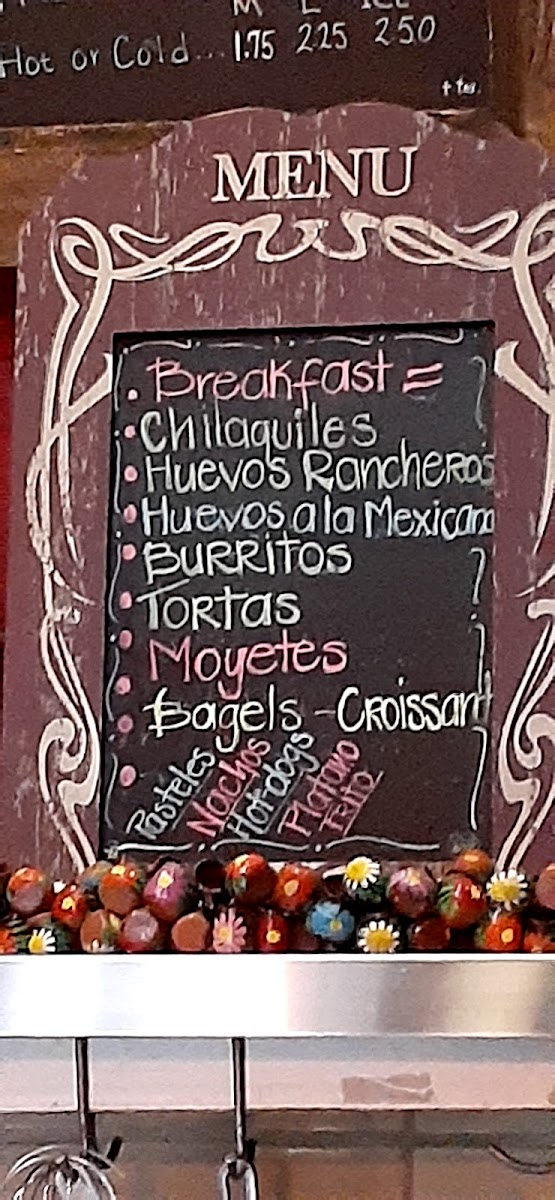 M L ICE
Hot or Cold... 1.75 2.25 2.50
+ tax
MENU
Breakfast =
Chilaquiles
Huevos Rancheros
Huevos a la Mexicana
BURRITOS
TORTAS
Moyetes
Bagels - CRoissant
Pasteles
Nachos
Hot dogs
Platano
FRito